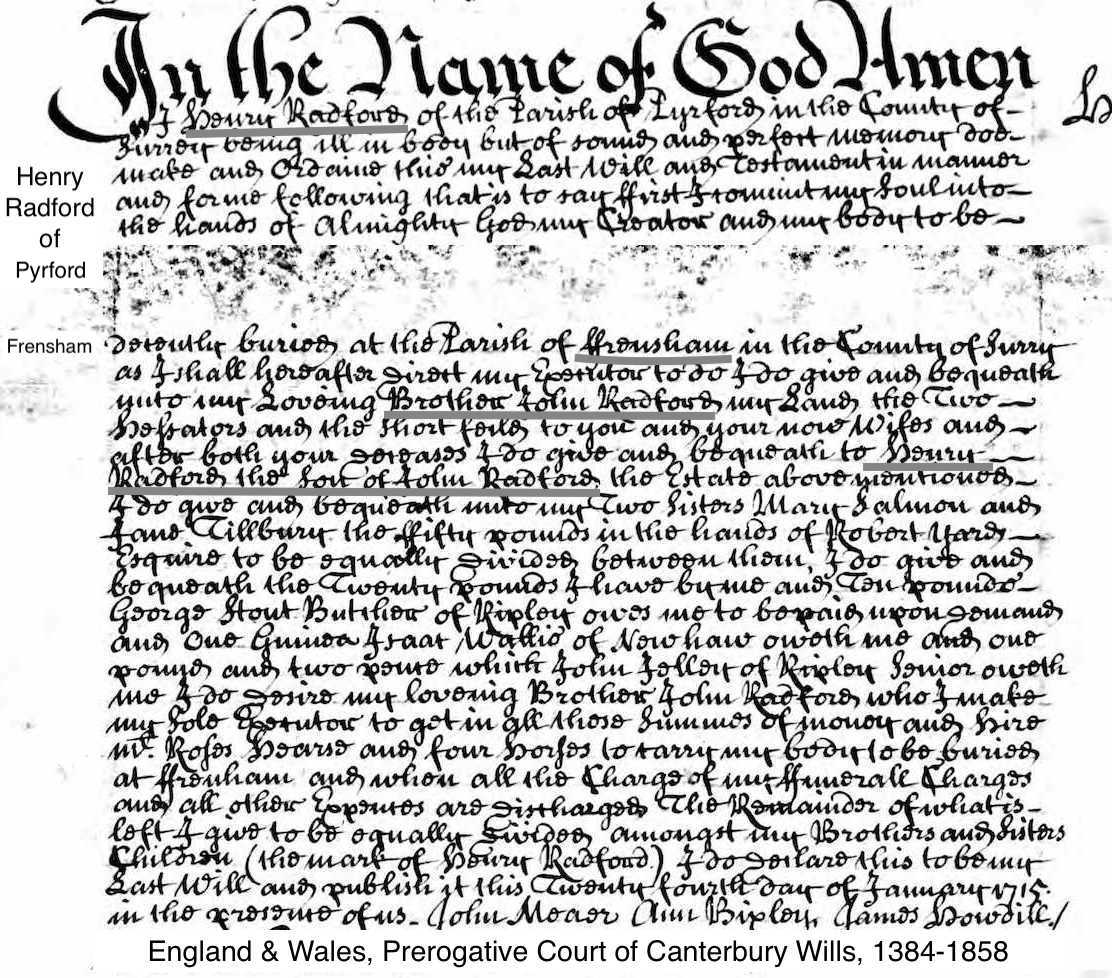 In the Name of God Amen
I Henry Radford of the Parish of Pyrford in the County of
Surrey being ill in body but of sound and perfect memory doe
make and Ordaine this my Last Will and Testament in manner
and forme following that is to say ffirst I comitt my Soul into
the hands of Almighty God my Creator and my body to be
Henry
Radford
of
Pyrford
Frensham
decently buried at the Parish of ffrensham in the County of Surry
as I shall hereafter direct my Executor to do I do give and bequeath
unto my Loveing Brother John Radford my Land the Two
and the short feild to you and your now Wifes and
after both your deceases I do give and bequeath to Henry
Radford the Son of John Radford the Estate above mentioned
I do give and bequeath unto my Two Sisters Mary Salmon and
Jane Tillbury the ffifty pounds in the hands of Robert Yard
Esquire to be equally divided between them, I do give and
bequeath the Twenty pounds I have by me and Ten pounds
George Stout Butcher of Ripley owes me to be paid upon demand
and One Guinea Isaac Wallis of Newhaw oweth me and one
pound and two pence which John Jelley of Ripley Senior oweth
me I do desire my loveing Brother John Radford who I make
my Sole Executor to get in all those Summes of money and hire
mr. Roses Hearse and four horses to carry my body to be buried
at ffrenham and when all the Charge of my ffunerall Charges
and all other Expences are discharged The Remainder of what is
left I give to be equally divided amongst my Brothers and Sisters
Children (the mark of Henry Radford) I do declare this to be my
Last Will and publish it this Twenty fourth day of January 1715
in the presence of us. John Ann Ripley, James Howdill./
England & Wales, Prerogative Court of Canterbury Wills, 1384-1858